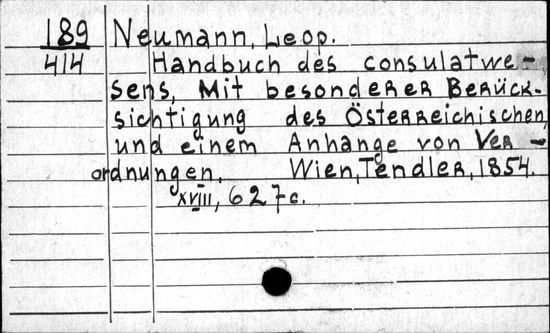 189 Neumann, Leop.
414 Handbuch des consulatwe-
sens, Mit besonderer Berück-
sichtigung des Österreichischen,
und einem Anhange von Ver-
ordnungen. Wien, Tendler, 1854.
XVIII, 627c.